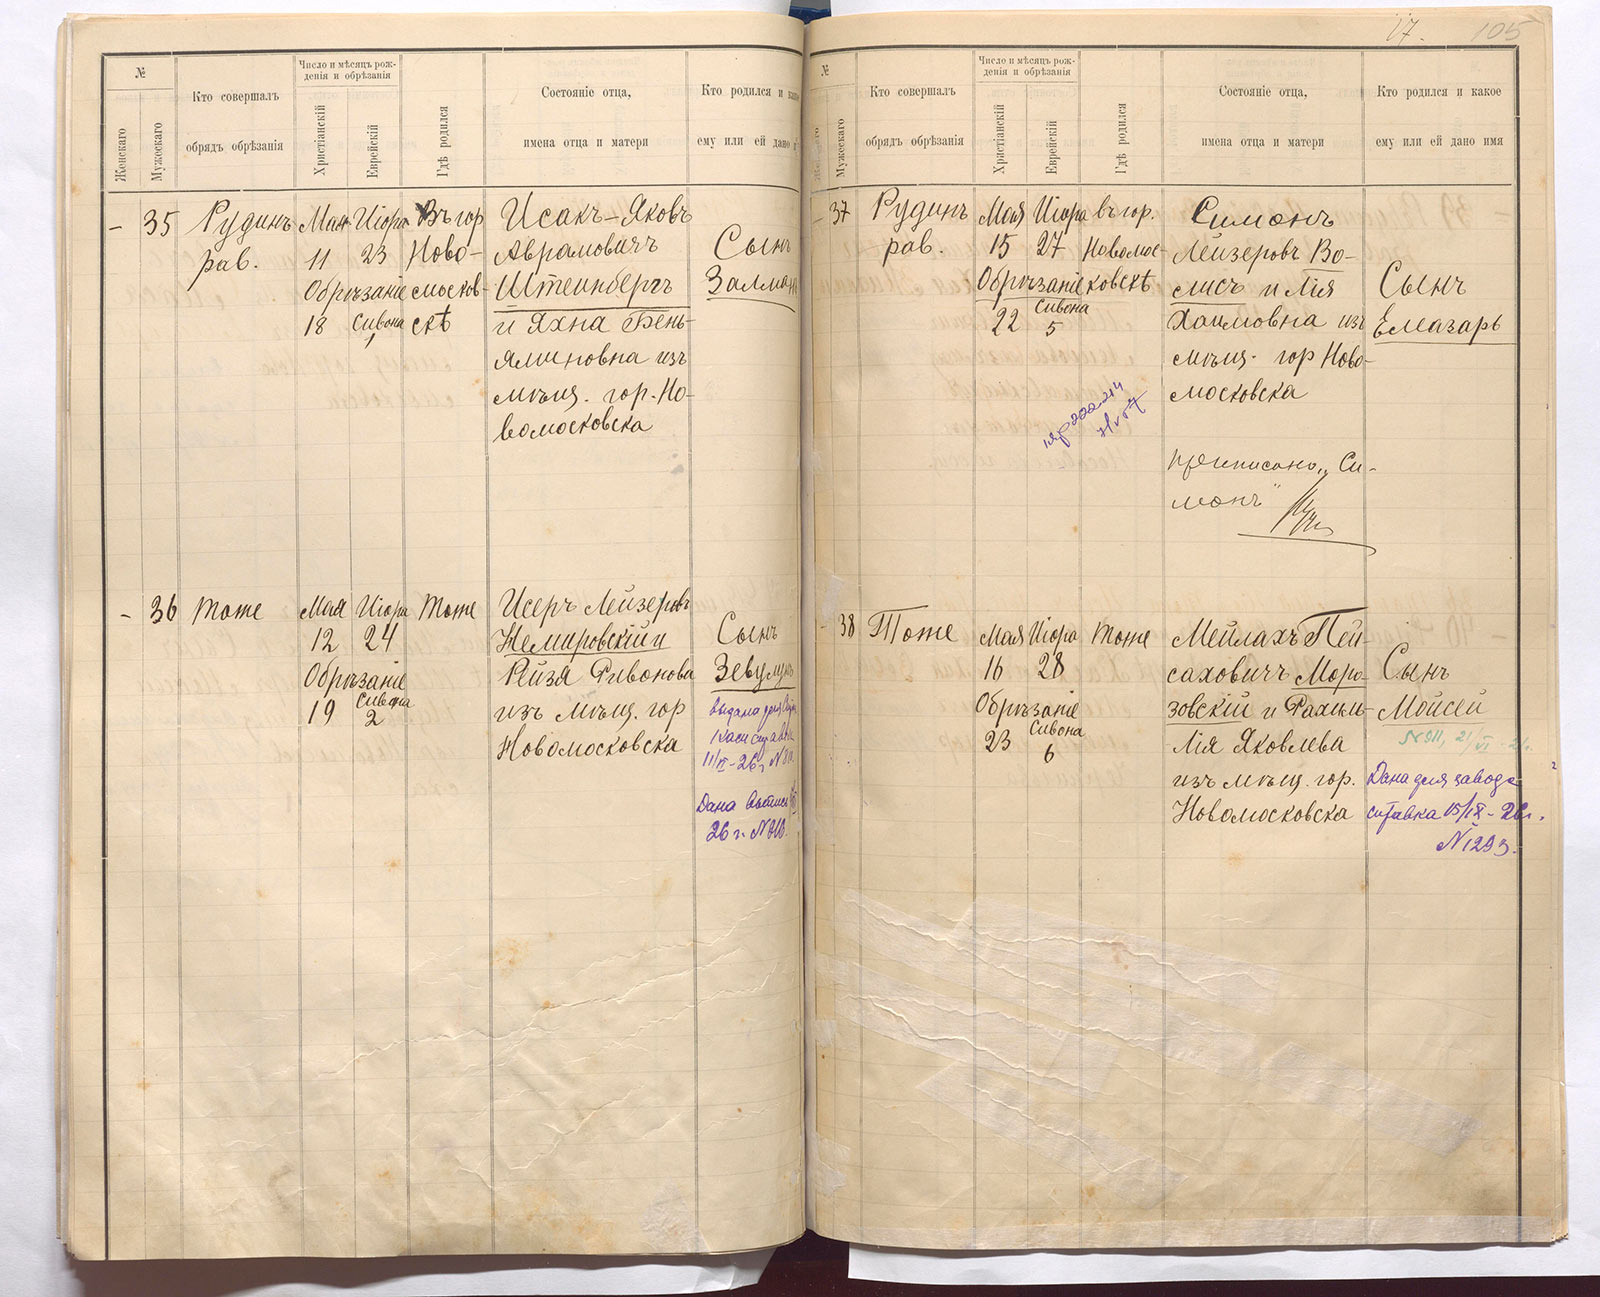 №
Женскаго
Мужескаго
Кто совершалъ
обрядъ обрѣзанія
Число и мѣсяцъ рож-
денія и обрѣзанія
Христіанскій
Еврейскій
Гдѣ родился
Состояніе отца,
имена отца и матери
Кто родился и какое
ему или ей дано
– 35
Рудинъ
рав.
Мая
11
Обрѣзаніе
18
Иіора
23
Сивона
1
Въ гор
Ново-
москов-
скѣ
Исакъ-Яковъ
Аврамовичъ
Штеинбергъ
и Яхна Бень-
яминовна изъ
мѣщ. гор. Но-
вомосковска
Сынъ
Залманъ
– 36
тоже
Мая
12
Обрѣзаніе
19
Иіора
24
Сивона
2
тоже
Исеръ Лейзеровъ
Немировскій и
Рейзя
изъ мѣщ. гор
Новомосковска
Сынъ
Зевулунъ
выдана для
11/VI-26 г N
Дана
26 г. N
17.
105
№
Мужескаго
Кто совершалъ
обрядъ обрѣзанія
Число и мѣсяцъ рож-
денія и обрѣзанія
Христіанскій
Еврейскій
Гдѣ родился
Состояніе отца,
имена отца и матери
Кто родился и какое
ему или ей дано имя
– 37
Рудинъ
рав.
Мая
15
Обрѣзаніе
22
Иіора
27
Сивона
5
въ гор.
Новомос-
ковскѣ
Симонъ
Лейзеровъ Во-
лисъ и Лія
Хаимовна изъ
мѣщ. гор Ново-
московска
Сынъ
Елеазаръ
„Си-
монъ"
– 38
Тоже
Мая
16
Обрѣзаніе
23
Иіора
28
Сивона
6
тоже
Мейлахъ Пей-
саховичъ Моро-
зовскій и Рахиль-
Лія Яковлева
изъ мѣщ. гор.
Новомосковска
Сынъ
Мойсей
N 911, 21/VI-26г.
Дана для завода
справка 15/IX-26г.
N 1293.